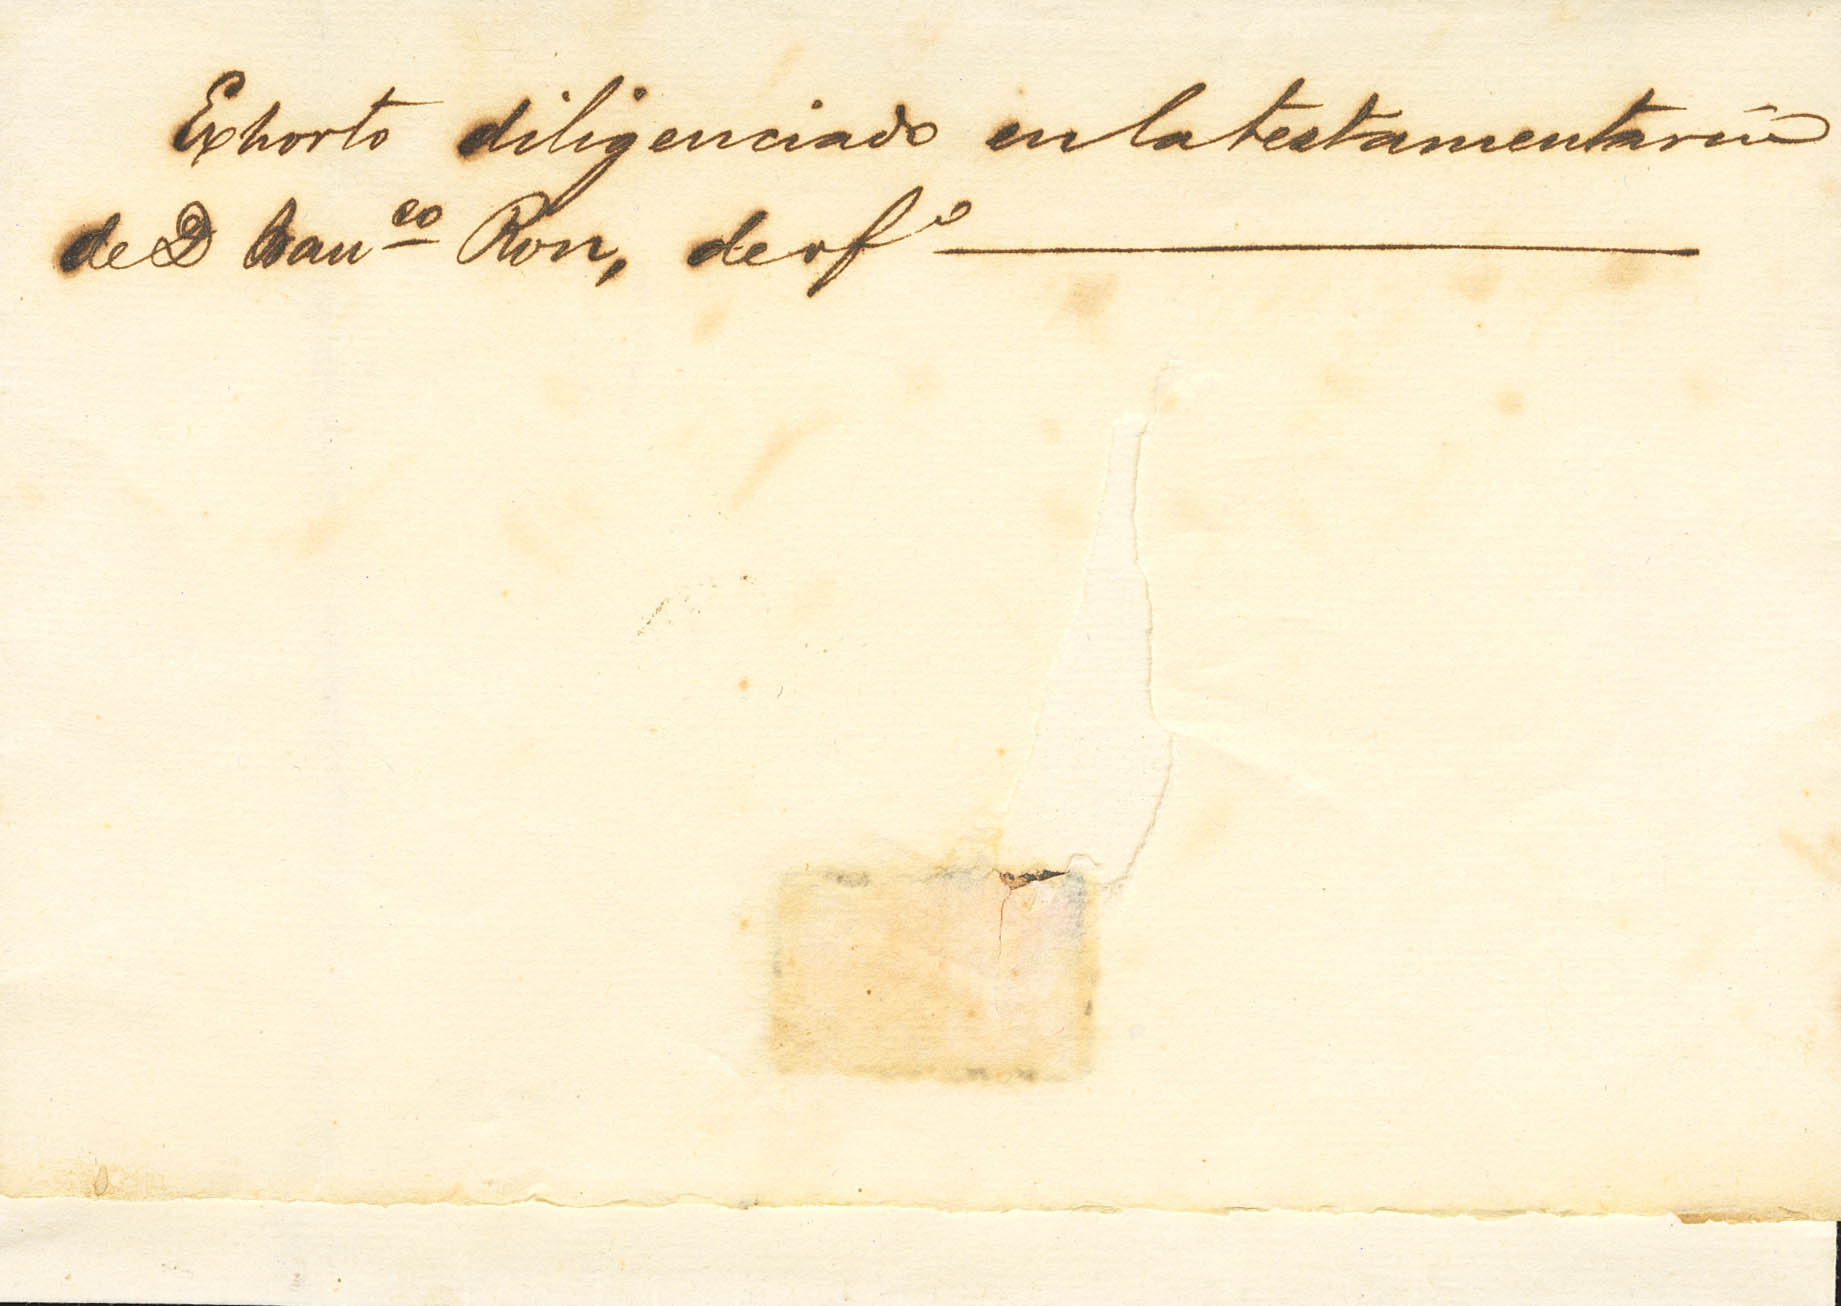 Exhorto diligenciado en la testamentaria
de D Franco Ron, de ofo